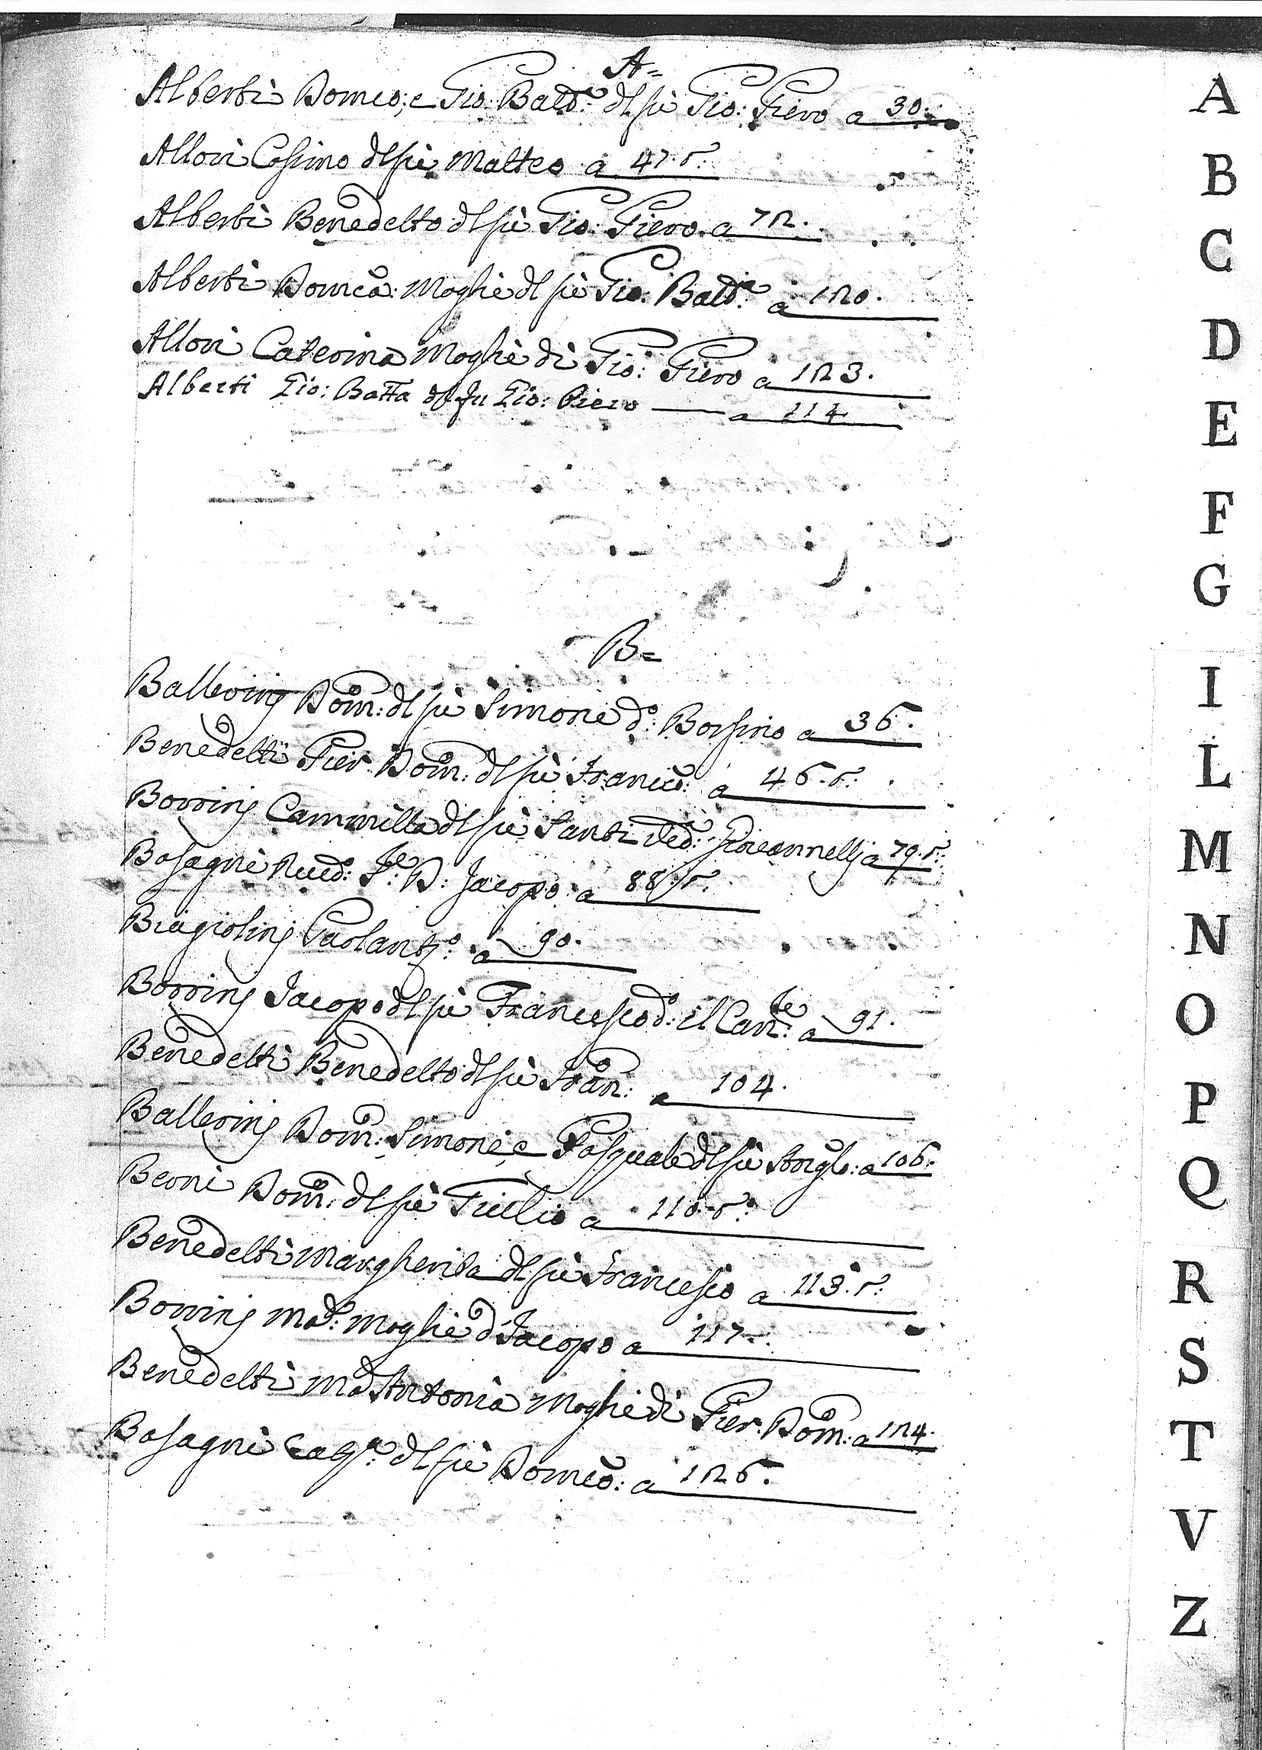 A=
Alberti Domco: e Gio: Batta: dl fù Gio: Piero a 30.
Allori Cosimo dl fù Matteo a 47.r.
Alberti Benedetto dl fù Gio: Piero a 72.
Alberti Domca: Moglie dl fù Gio: Batta: a 120.
Allori Caterina Moglie di Gio: Piero a 123.
Alberti Gio: Batta dl fu Gio: Piero — a 114
B=
Ballerinj Dom: dl fù Simone do: Borsino a 36.
Benedetti Pier Dom: dl fù Franco: a 46.r.
Borrinj Cammilla dl fù Santi Ved: Giovannellj a 79.r.
Bosagni Revd: Pte: D: Jacopo a 88.r.
Biagiolinj Paolanto: a 90.
Borrinj Jacopo dl fù Francesco do: il Cante: a 91.
Benedetti Benedetto dl fù Fran: a 104.
Ballerinj Dom: Simone, e Pasquale dl fù Anglo: a 106.
Berni Dom: dl fù Giulio a 110.r.
Benedetti Margherita dl fù Francesco a 113.r.
Borrinj Mda: Moglie d'Jacopo a 117.
Benedetti Md Antonia Moglie di Pier Dom: a 124.
Bosagni dl fù Domco: a 126.
A
B
C
D
E
F
G
I
L
M
N
O
P
Q
R
S
T
V
Z